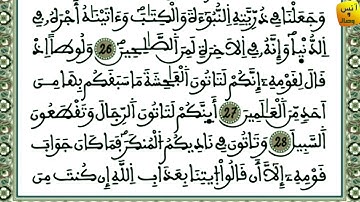 وَجَعَلْنَا فِے ذُرِّيَّتِهِ اِ۬لنُّبُوٓءَةَ وَالْكِتَٰبَ وَءَاتَيْنَٰهُ أَجْرَهُۥ فِے
اِ۬لدُّنْيَا وَإِنَّهُۥ فِے اِ۬لَاخِرَةِ لَمِنَ اَ۬لصَّٰلِحِينَ 26 وَلُوطاً اِذْ
قَالَ لِقَوْمِهِۦٓ إِنَّكُمْ لَتَاتُونَ اَ۬لْفَٰحِشَةَ مَا سَبَقَكُم بِهَا مِنَ
اَحَدٍ مِّنَ اَ۬لْعَٰلَمِينَ 27 أَئِنَّكُمْ لَتَاتُونَ اَ۬لرِّجَالَ وَتَقْطَعُونَ
اَ۬لسَّبِيلَ 28 وَتَاتُونَ فِے نَادِيكُمُ اُ۬لْمُنكَرَ فَمَا كَانَ جَوَابَ
قَوْمِهِۦٓ إِلَّآ أَن قَالُواْ اُ۪يتِنَا بِعَذَابِ اِ۬للَّهِ إِن كُنتَ مِنَ